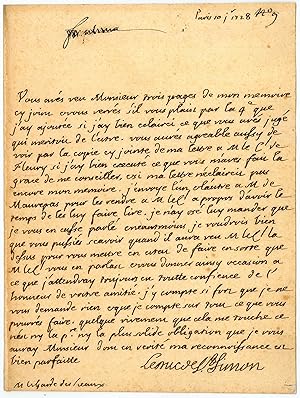 Paris 10 jr 1728
Vous avés veu Monsieur trois pages de mon memoire
cy joint. vous verrés s'il vous plaist par la 4e que
j'ay ajoutée si j'ay bien eclairci ce que vous avés jugé
qui meritoit de l'estre. vous aurés agreable aussy de
voir par la copie cy jointe de ma lettre a M le C de
Fleury si j'ay bien executé ce que vous m'avés fait la
grace de me conseiller, et si ma lettre n'eclaircit pas
encore mon memoire. j'envoye l'un et l'autre a M de
Maurepas pour les rendre a M le C a propos d'avoir le
temps de les luy faire lire. je n'ay osé luy mander que
je vous en eusse parlé. neantmoins je voudrois bien
que vous pussiés scavoir quand il aura veu M le C la
dessus pour vous mettre en estat de faire en sorte que
M le C vous en parlast et vous donner ainsy occasion a
ce que j'attendray toujours en toute confience de l'
honneur de vostre amitié. j'y compte si fort que je ne
vous demande rien et que je compte sur tout ce que vous
pourrés faire. quelque vivement que cela me touche ce
n'est ny la 1re ny la plus solide obligation que je vous
auray Monsieur dont en verité ma reconnoissance est
bien parfaitte.
Le duc de St Simon
M le Garde des Sceaux